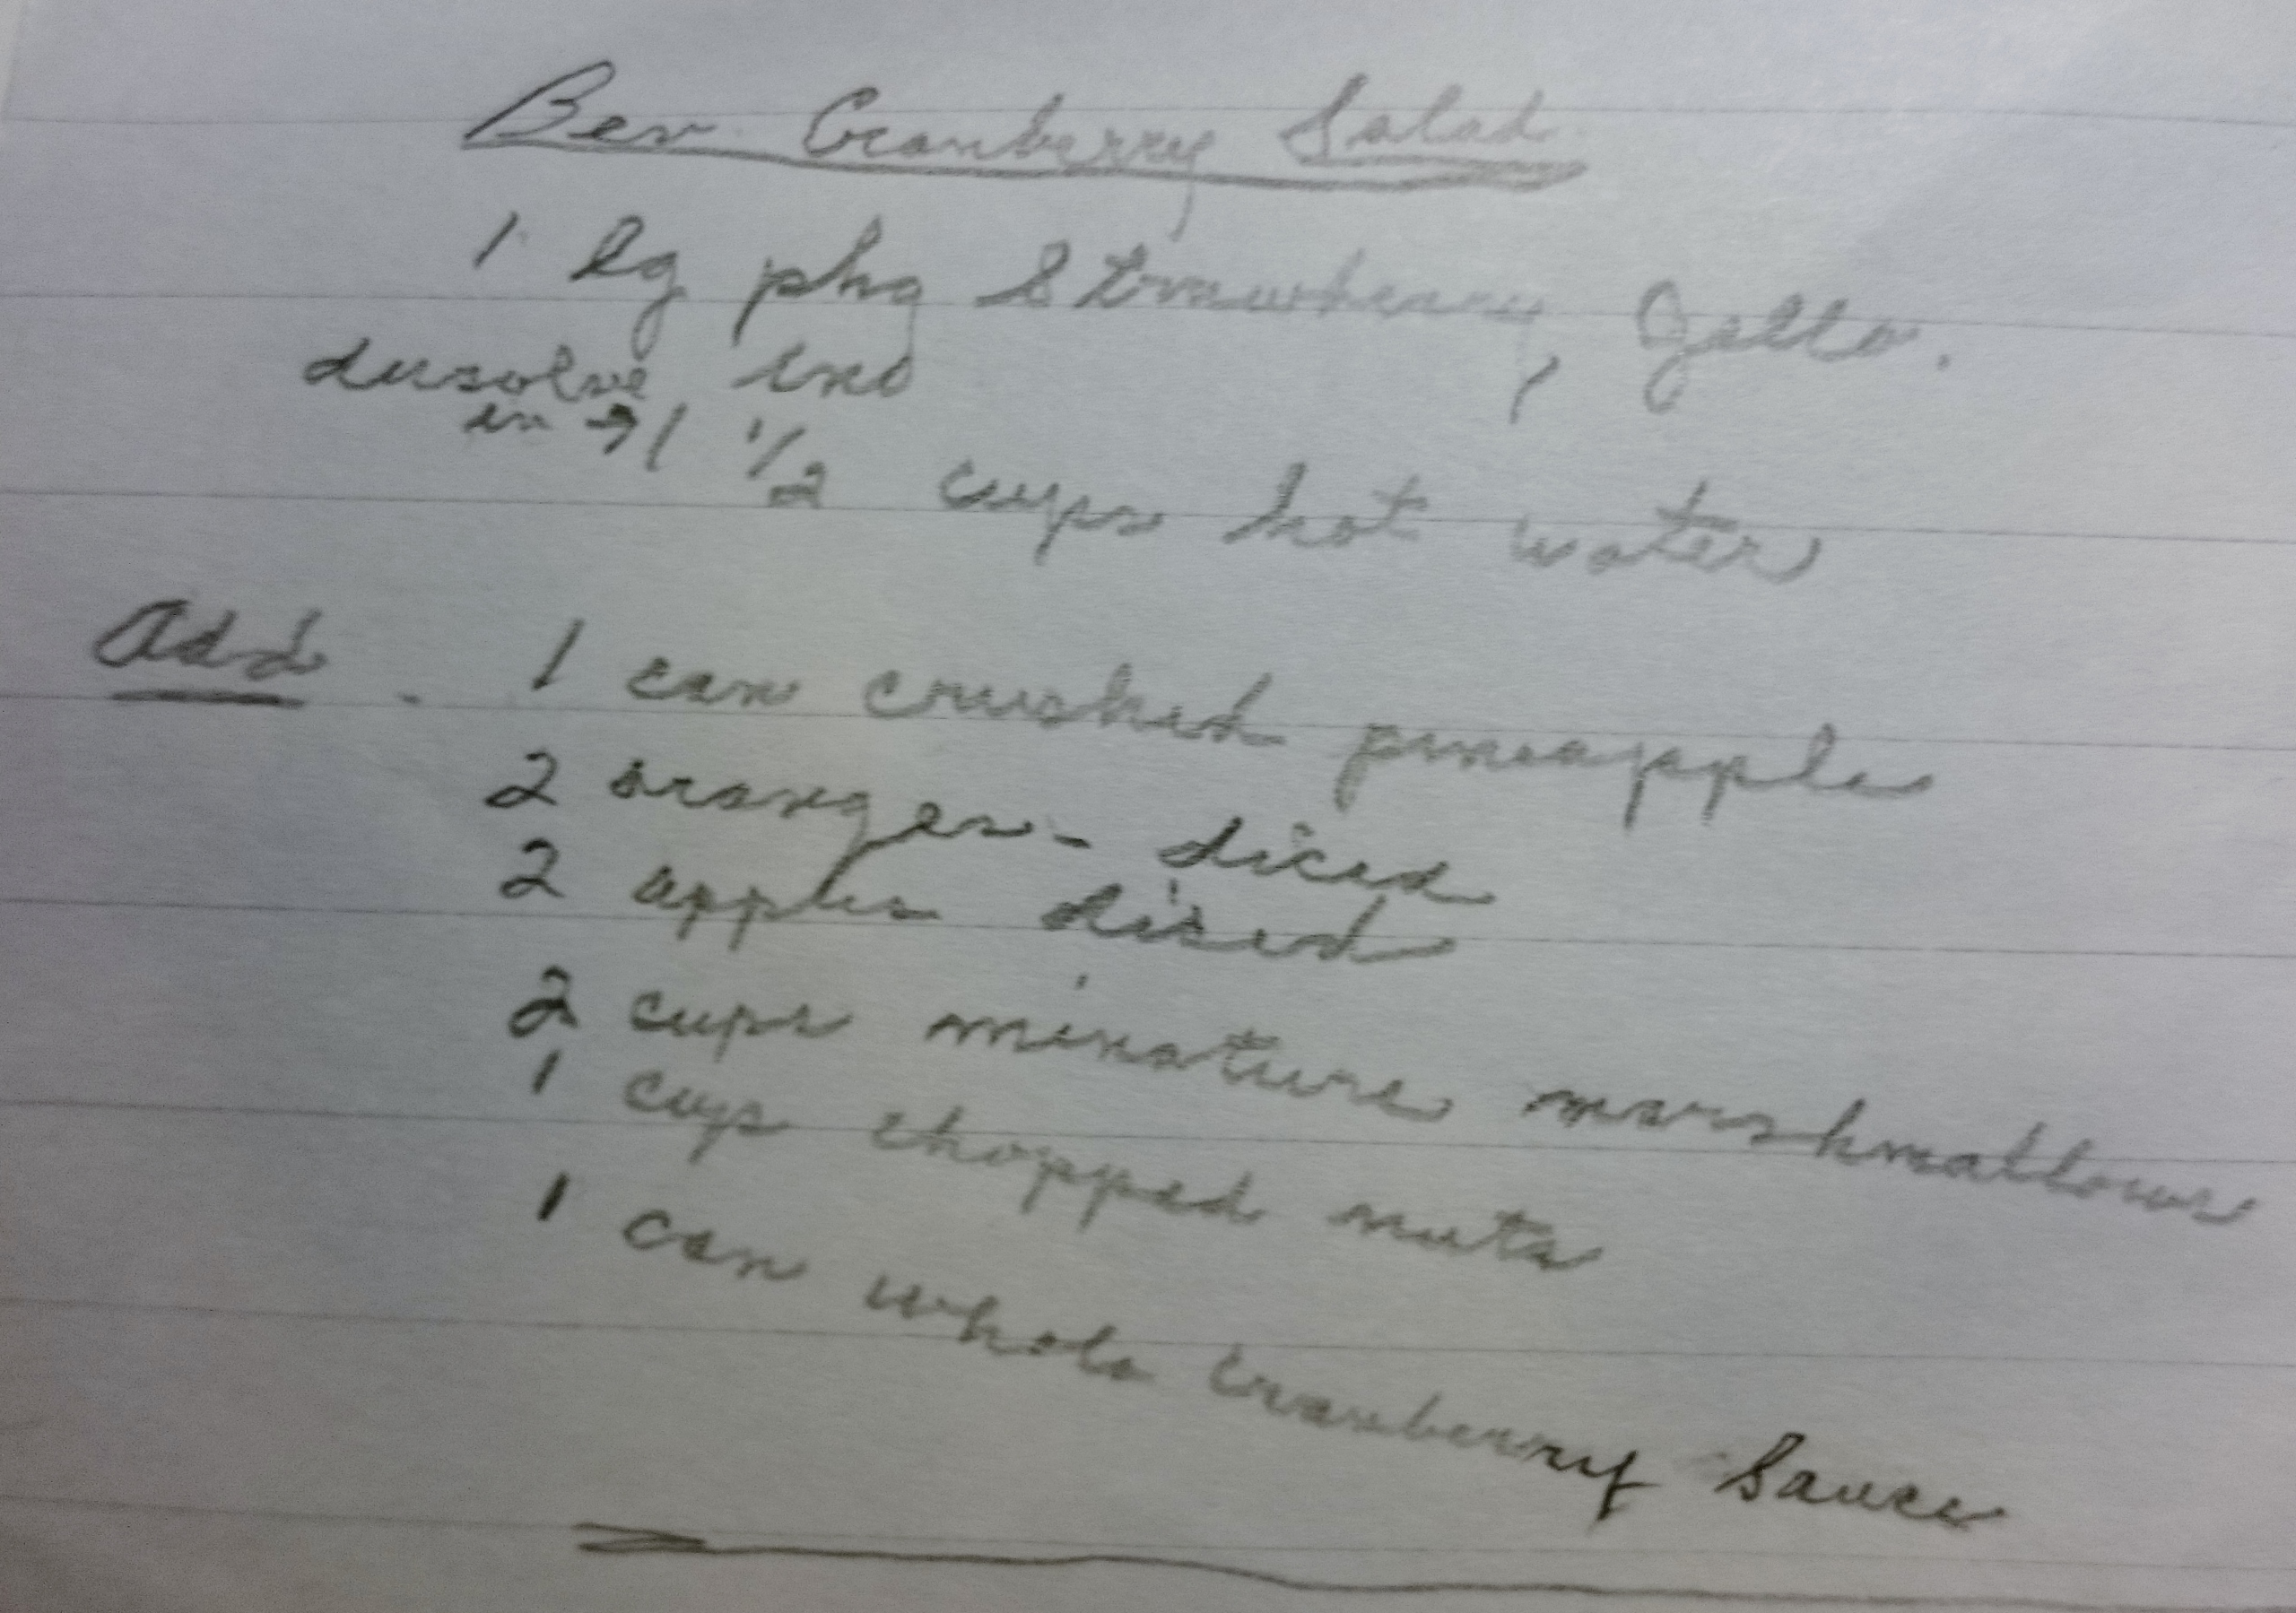 Bev Cranberry Salad
1 lg pkg Strawberry Jello.
disolve
in → 1 1/2 cups hot water
Add. 1 can crushed pineapple
2 oranges - diced
2 apples diced
2 cups minature marshmallows
1 cup chopped nuts
1 can whole cranberry Sauce